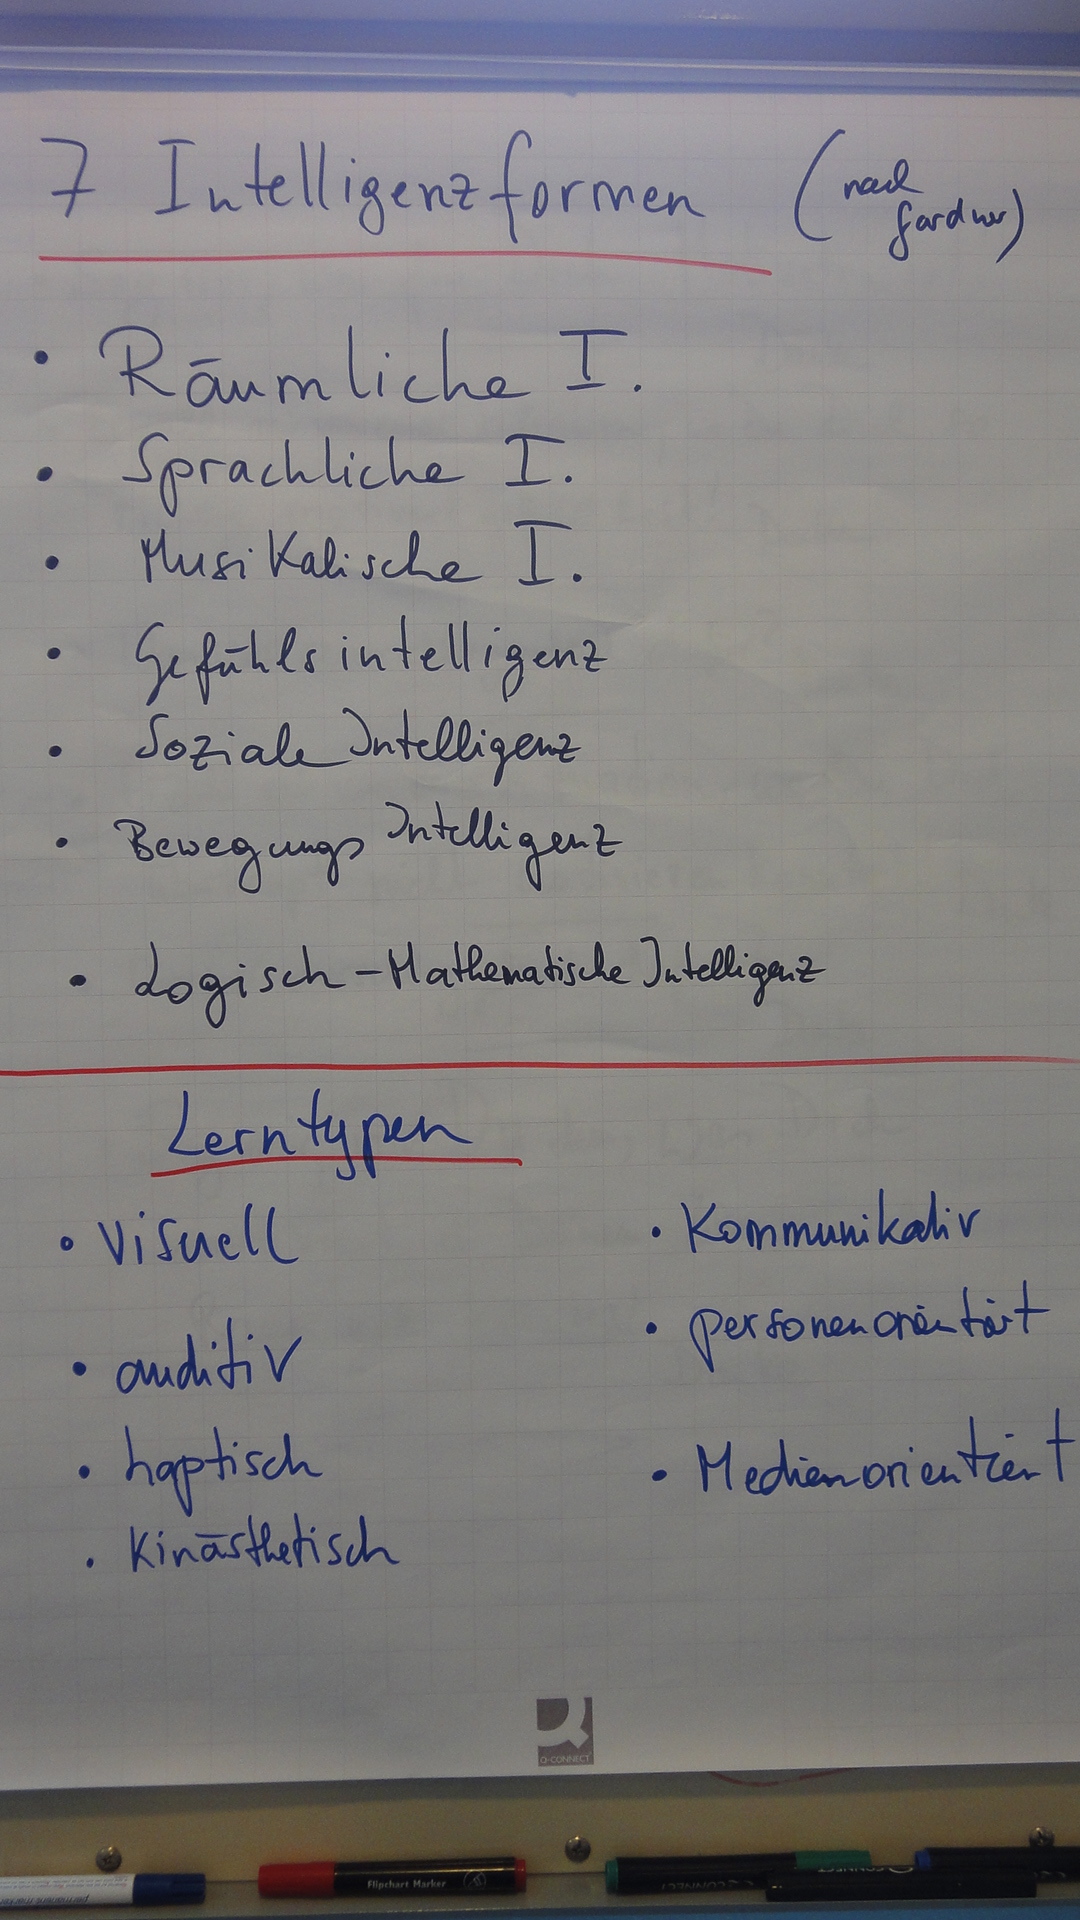 7 Intelligenzformen (nach
Gardner)
• Räumliche I.
• Sprachliche I.
• Musikalische I.
• Gefühlsintelligenz
• Soziale Intelligenz
• Bewegungs Intelligenz
• Logisch-Mathematische Intelligenz
Lerntypen
• Visuell
• auditiv
• haptisch
• Kinästhetisch
• Kommunikativ
• personenorientiert
• Medienorientiert
Q-CONNECT
Flipchart Marker
CONNECT